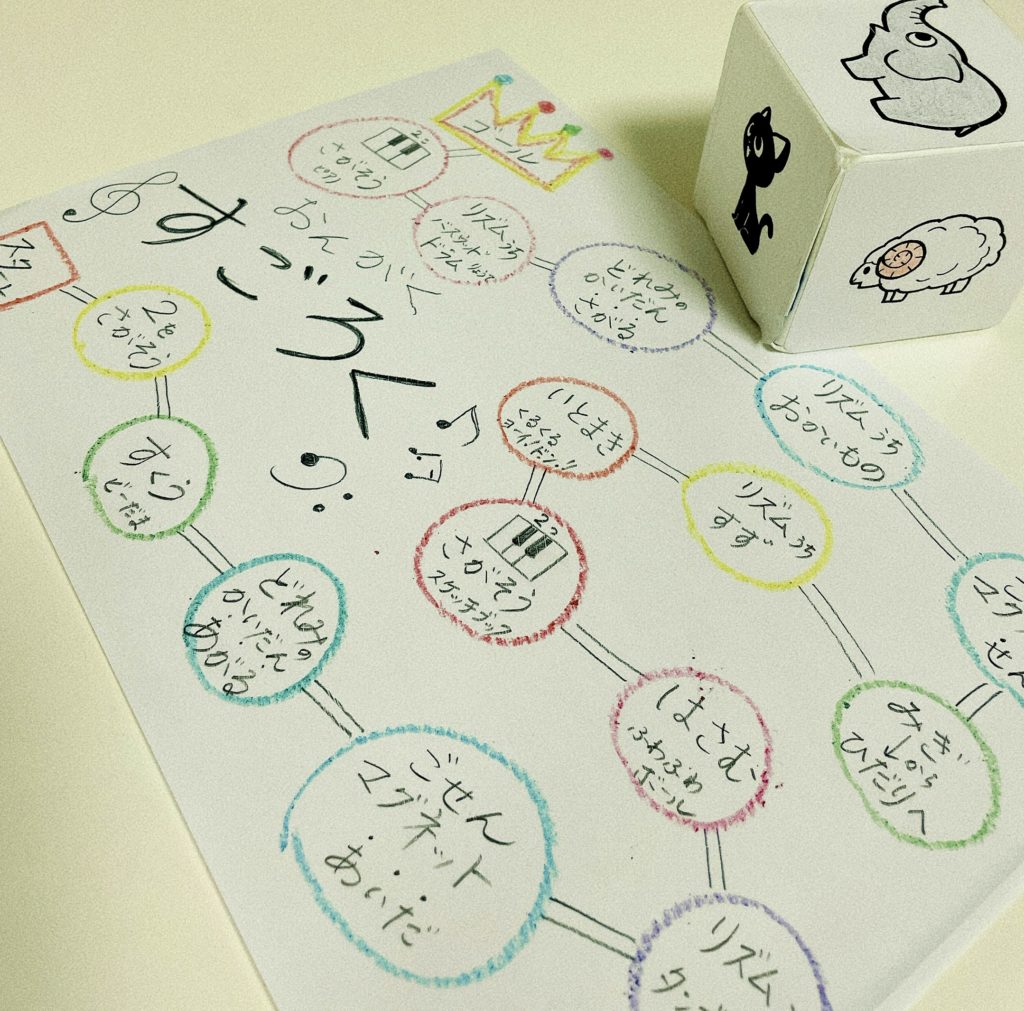 おんがく
すごろく
2を
さがそう
すくう
びーだま
どれみの
かいだん
あがる
ごせん
マグネット
あいだ
リズム
はさむ
ふわふわ
ボール
さがそう
スケッチブック
いとまき
くるくる
ヨーイ!ドン!!
リズムうち
すず
みぎ
から
ひだりへ
マグ
せん
リズムうち
おかいもの
どれみの
かいだん
さがる
リズムうち
ドラム
さがそう
ゴール